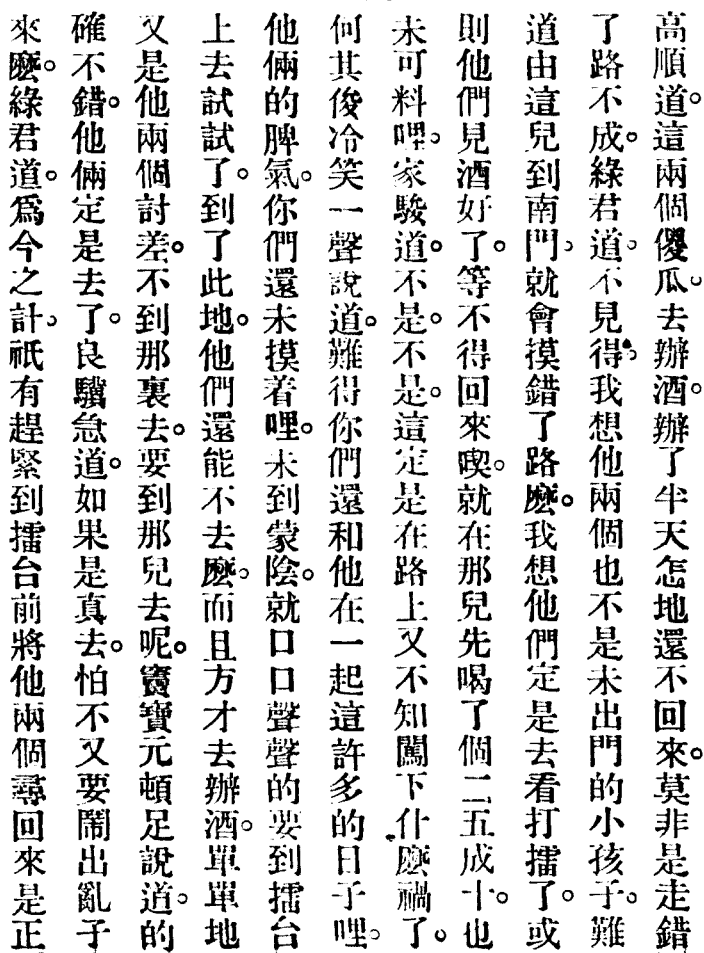 高順道。這兩個儍瓜。去辦酒。辦了半天怎地還不回來。莫非是走錯
了路不成。綠君道。不見得。我想他兩個也不是未出門的小孩子。難
道由這兒到南門。就會摸錯了路麽。我想他們定是去看打擂了。或
則他們見酒好了。等不得回來喫。就在那兒先喝了個二五成十。也
未可料哩。家駿道。不是。不是。這定是在路上又不知闖下什麽禍了。
何其俊冷笑一聲說道。難得你們還和他在一起這許多的日子哩。
他倆的脾氣。你們還未摸着哩。未到蒙陰。就口口聲聲的要到擂台
上去試試了。到了此地。他們還能不去麽。而且方才去辦酒。單單地
又是他兩個討差。不到那裏去。要到那兒去呢。竇寶元頓足說道。的
確不錯。他倆定是去了。良驥急道。如果是真去。怕不又要鬧出亂子
來麽。綠君道。爲今之計。祇有趕緊到擂台前將他兩個尋回來是正